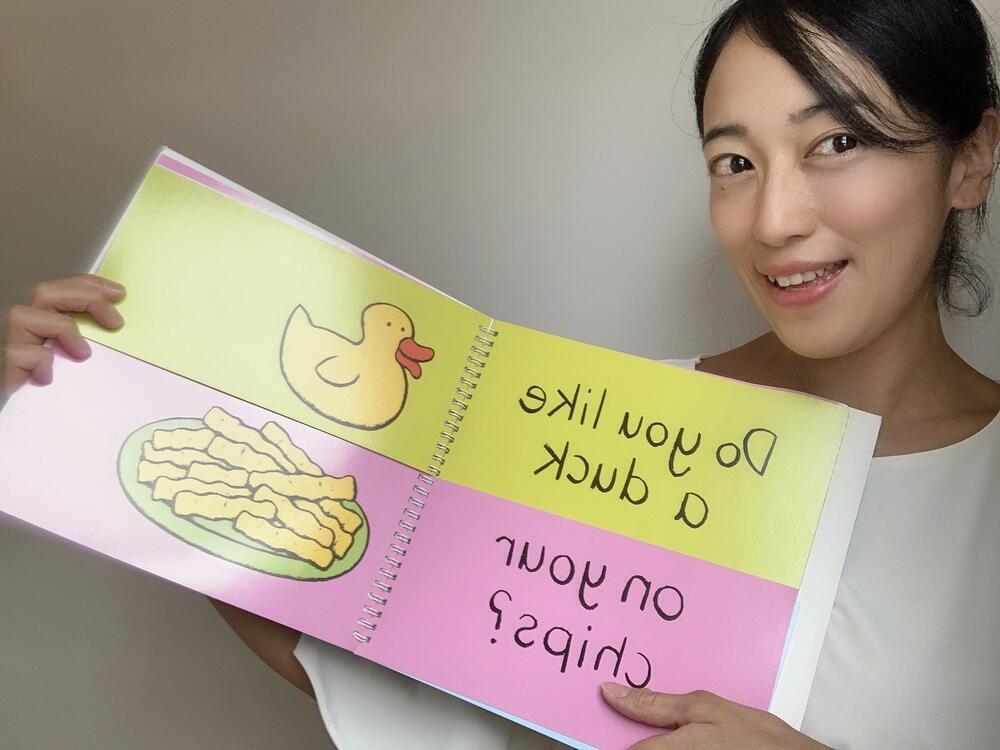 Do you like
a duck
on your
chips?